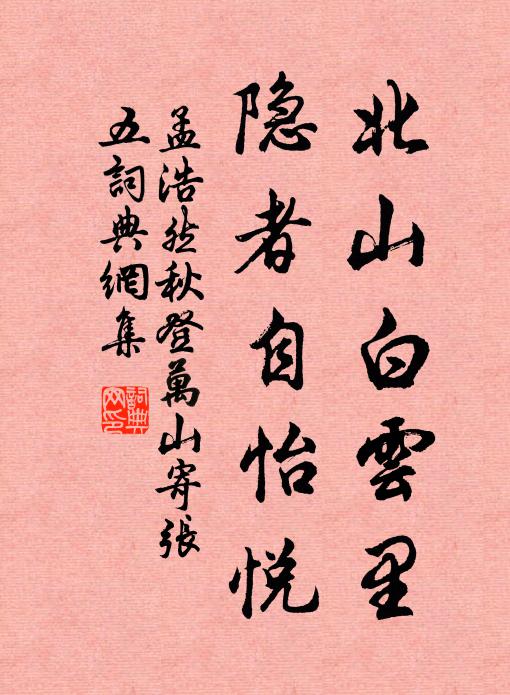 北山白雲里
隐者自怡悅
孟浩然秋登萬山寄張
五詞典網集
詞典
网印